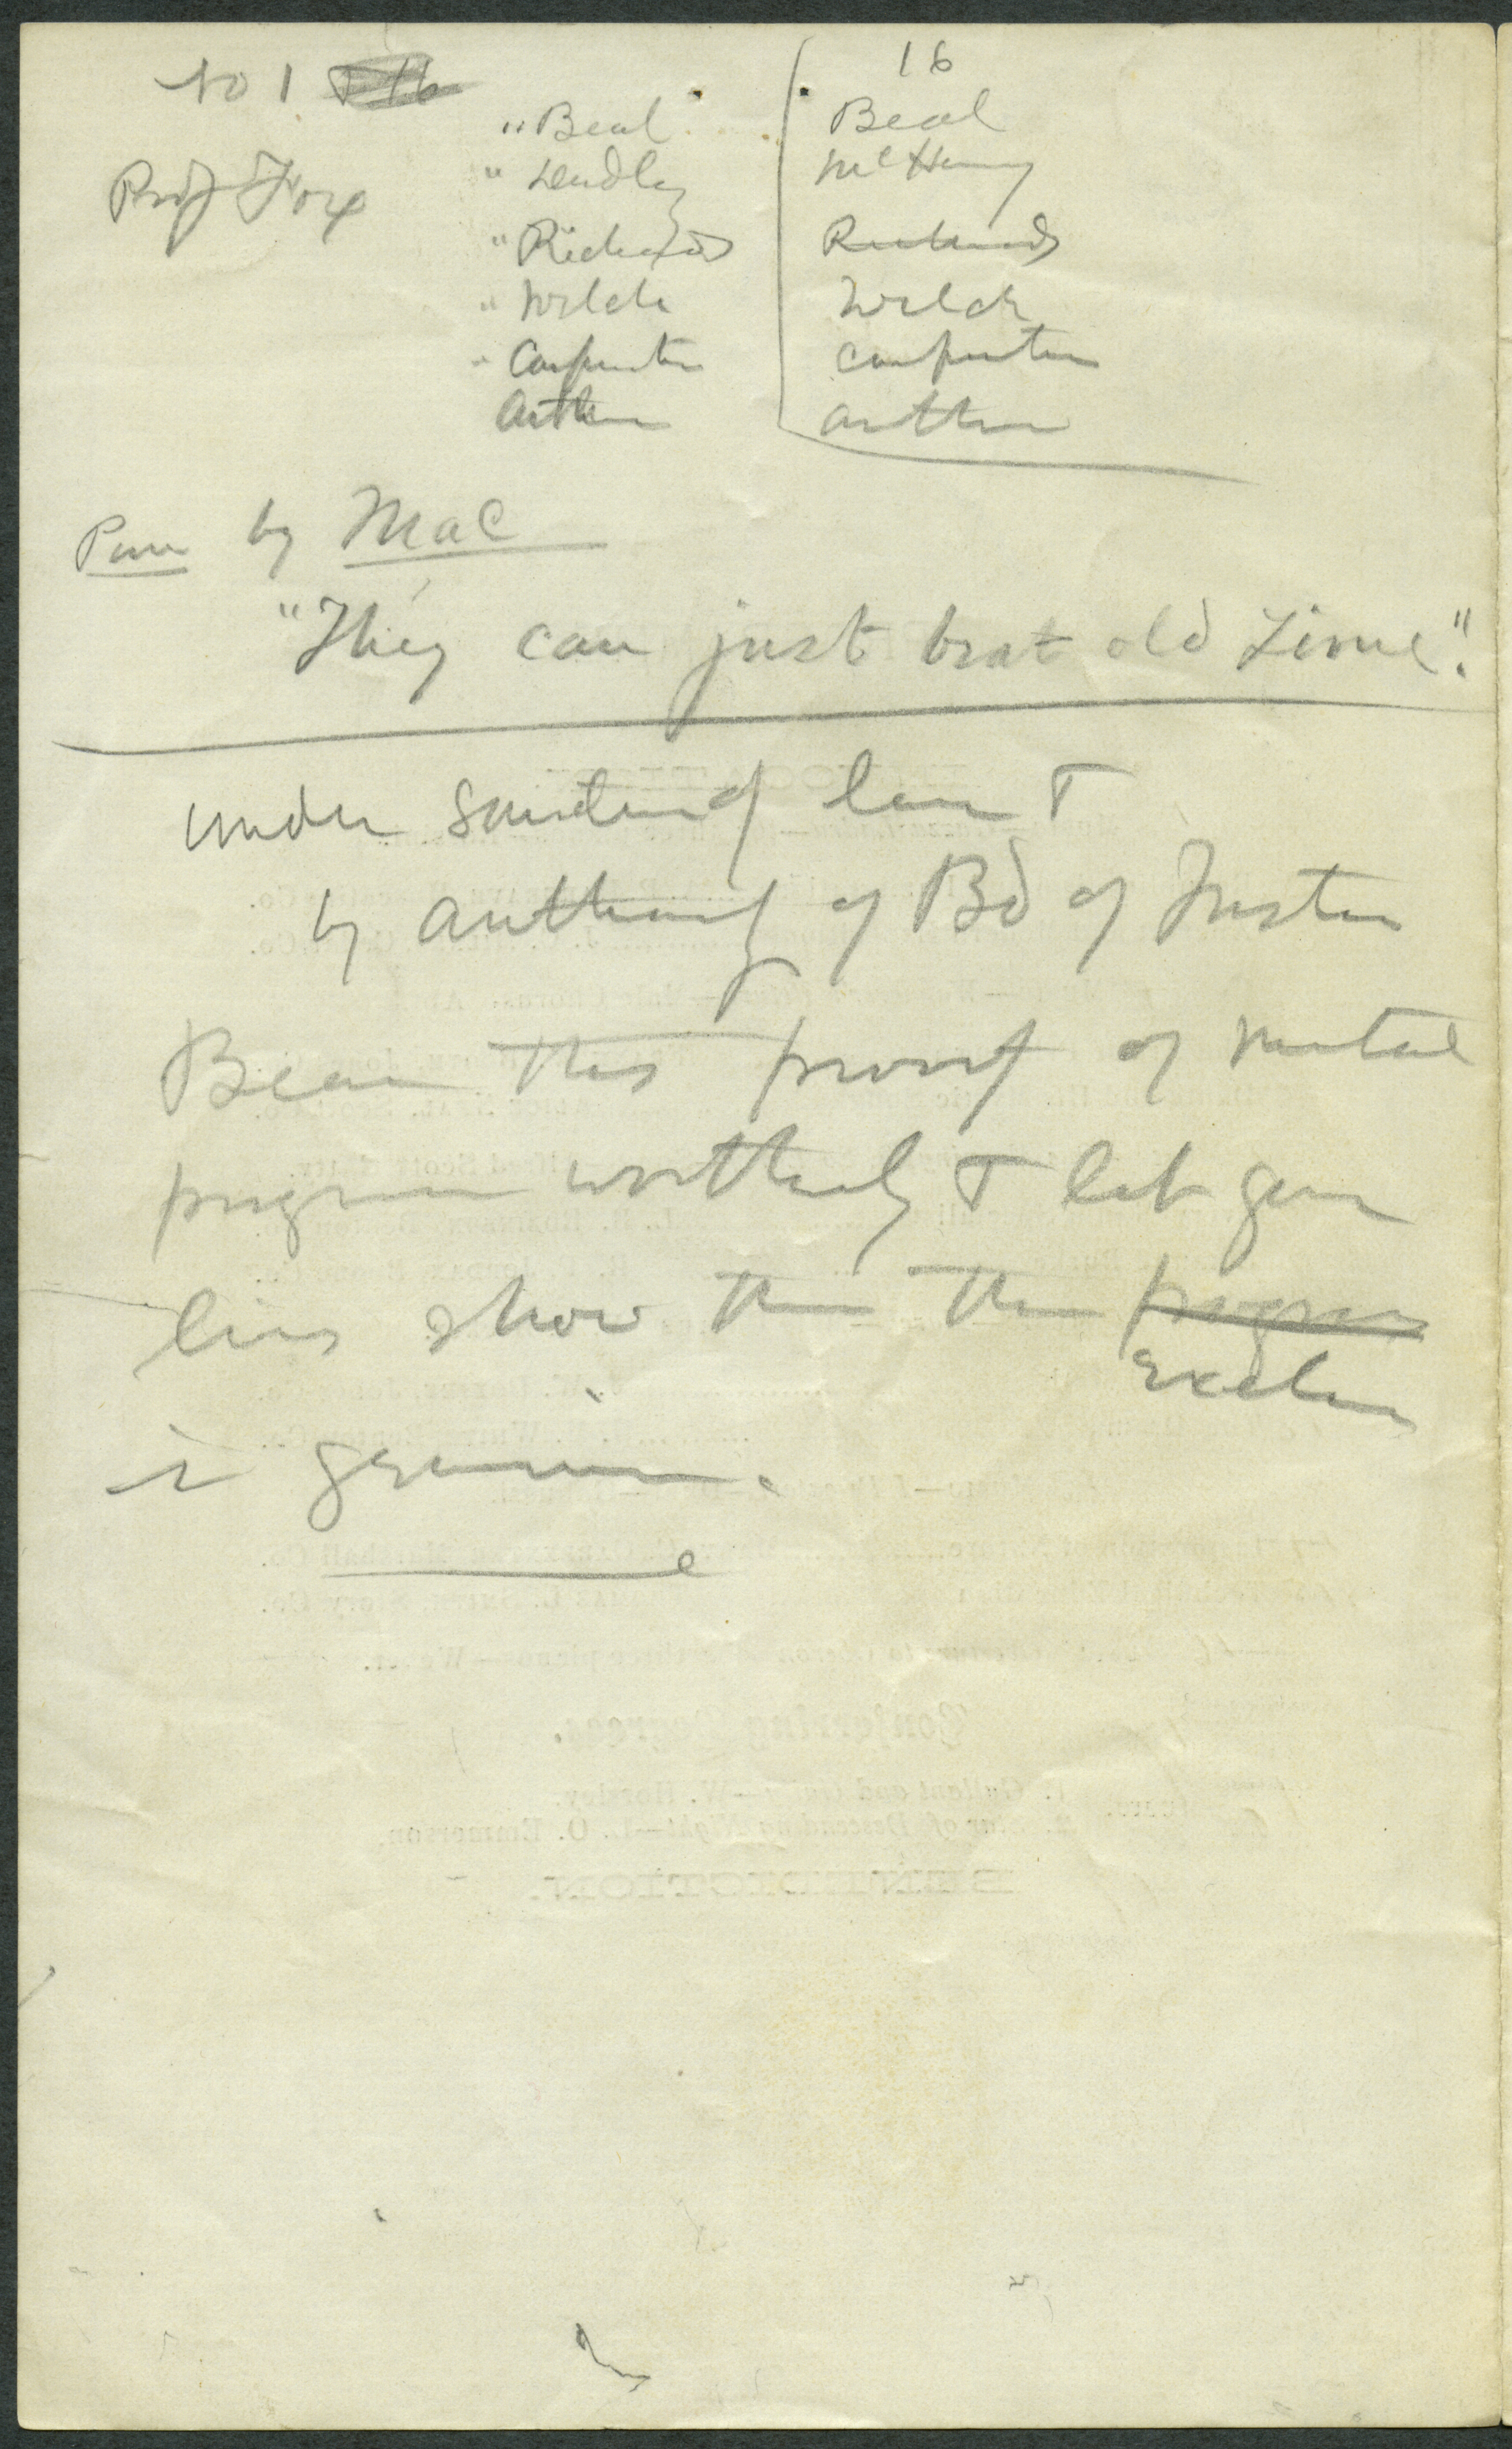 No 1 & 16
16
Prof Fox
" Beal
Beal
" Lendley
McHenry
" Richards
Richards
" Welch
Welch
" Carpenter
Carpenter
Arthur
Arthur
Pun by Mac
"They can just beat old Time".
under sanction of law &
by authority of Bd of Trustees
Bear this proof of mental
progress worthily & let your
lives show them the progress
Excelsior
is genuine.